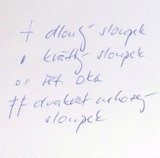 † dlouhý sloupek
• krátký sloupek
os řet. oka
## dvakrát nahozený
sloupek